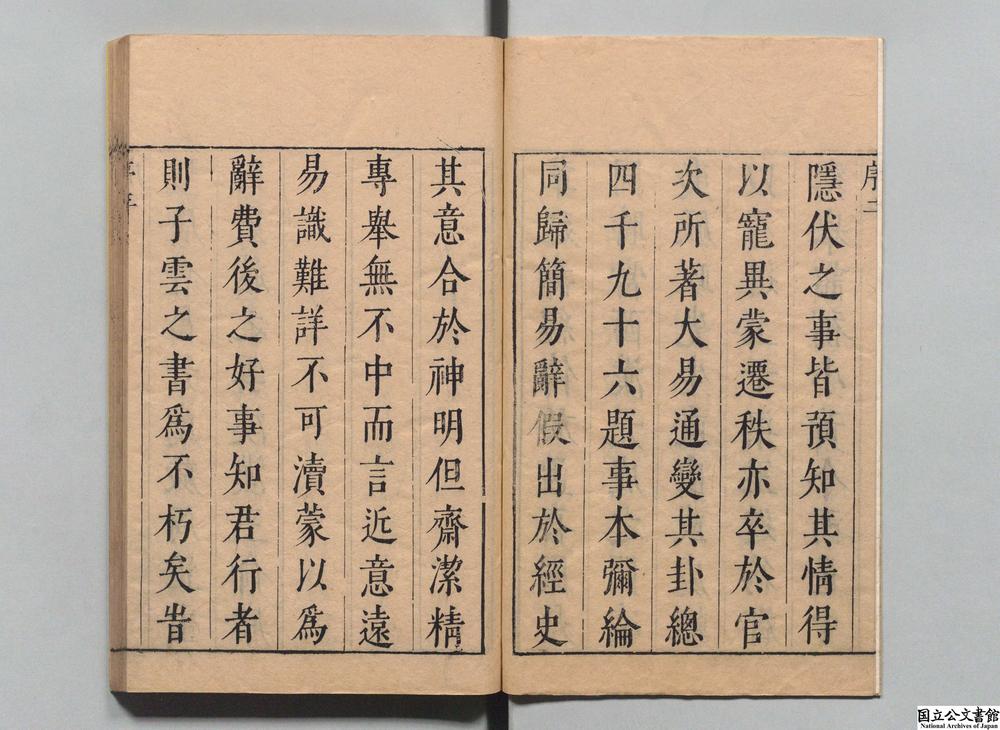 序二
隱伏之事皆預知其情得
以寵異蒙遷秩亦卒於官
次所著大易通變其卦總
四千九十六題事本彌綸
同歸簡易辭假出於經史
其意合於神明但齋潔精
專舉無不中而言近意遠
易識難詳不可瀆蒙以爲
辭費後之好事知君行者
則子雲之書爲不朽矣旹
国立公文書館
National Archives of Japan